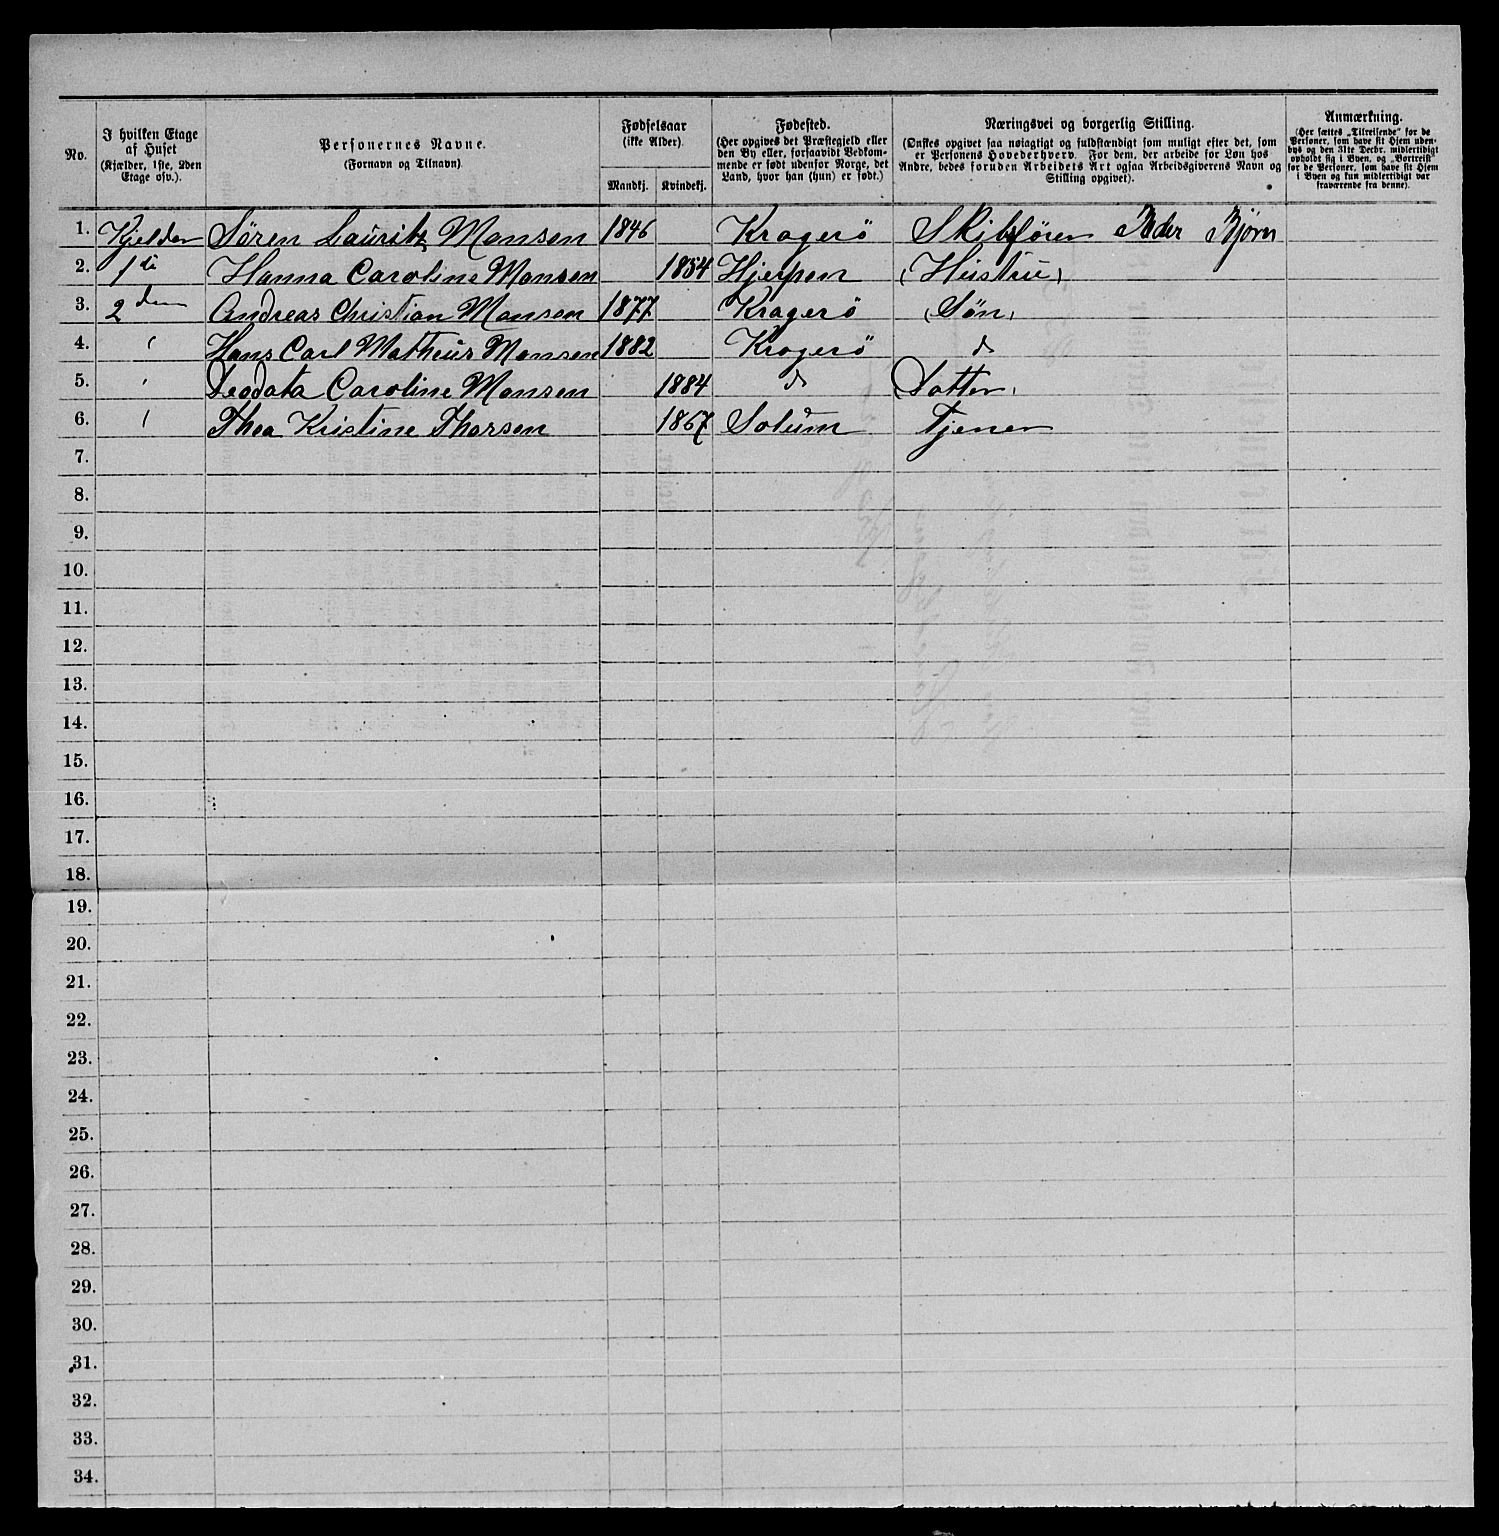 No.
I hvilken Etage af Huset (Kjælder, 1ste, 2den Etage osv.).
Personernes Navne.
(Fornavn og Tilnavn)
Fødselsaar
(ikke Alder).
Mandkj. Kvindekj.
Fødested.
(Her opgives det Præstegjeld eller
den By eller, forsaavidt Vedkom-
mende er født udenfor Norge, det
Land, hvor han (hun) er født.)
Næringsvei og borgerlig Stilling.
(Ønskes opgivet saa nøiagtigt og fuldstændigt som muligt efter det, som
er Personens Hovederhverv. For dem, der arbeide for Løn hos
Andre, bedes foruden Arbeidets Art ogsaa Arbeidsgiverens Navn og
Stilling opgivet).
Anmærkning.
(Her sættes „Tilreisende" for de
Personer, som have sit Hjem uden-
bys og den 31te Decbr. midlertidigt
opholdt sig i Byen, og „Bortreist"
for de Personer, som have sit Hjem
i Byen og kun midlertidigt var
fraværende fra denne).
1. Kjelder Sören Lauritz Monsen 1846 Kragerö Skibsförer Peder Björn
2. 1ste Hanna Caroline Monsen 1854 Hjerpen (Hustru)
3. 2den Andreas Christian Monsen 1877 Kragerö (Søn)
4. " Hans Carl Matheus Monsen 1882 Kragerö do
5. " Leodata Caroline Monsen 1884 do (Datter)
6. " Thea Kristine Thorsen 1867 Solum Tjener
7.
8.
9.
10.
11.
12.
13.
14.
15.
16.
17.
18.
19.
20.
21.
22.
23.
24.
25.
26.
27.
28.
29.
30.
31.
32.
33.
34.